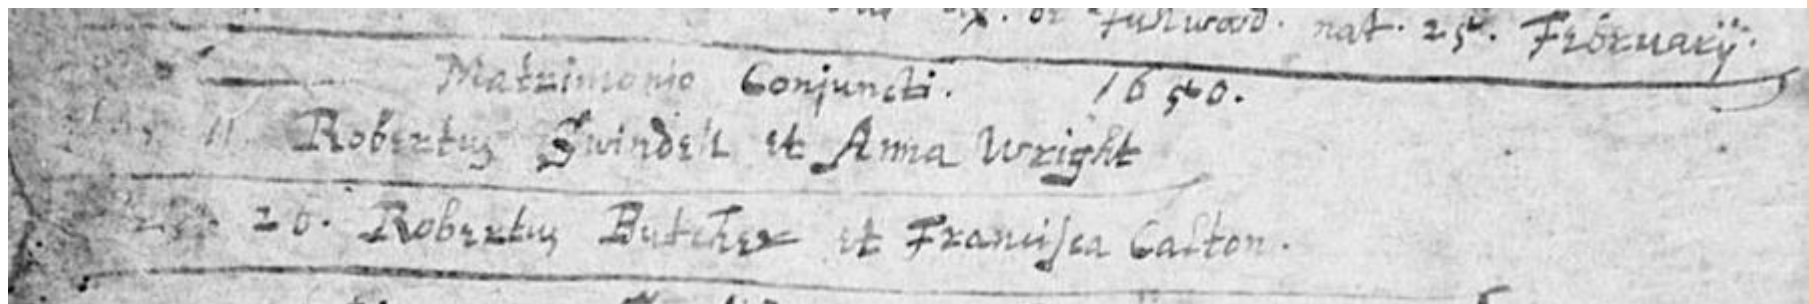 ux. de Fulwood. nat. 25. February.
Matrimonio Conjuncti. 1650.
11. Robertus Swindell et Anna Wright
26. Robertus Butcher et Francisca Caston.